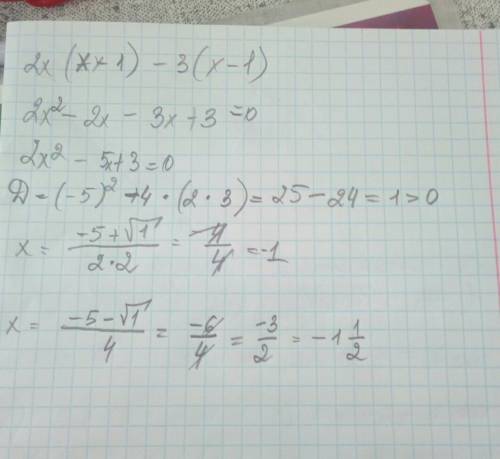 2x (x-1) - 3(x-1)
2x² - 2x - 3x + 3 = 0
2x² - 5x + 3 = 0
D = (-5)² - 4 · (2 · 3) = 25 - 24 = 1 > 0
x = (-5 + √1) / (2·2) = -4/4 = -1
x = (-5 - √1) / 4 = -6/4 = -3/2 = -1 1/2